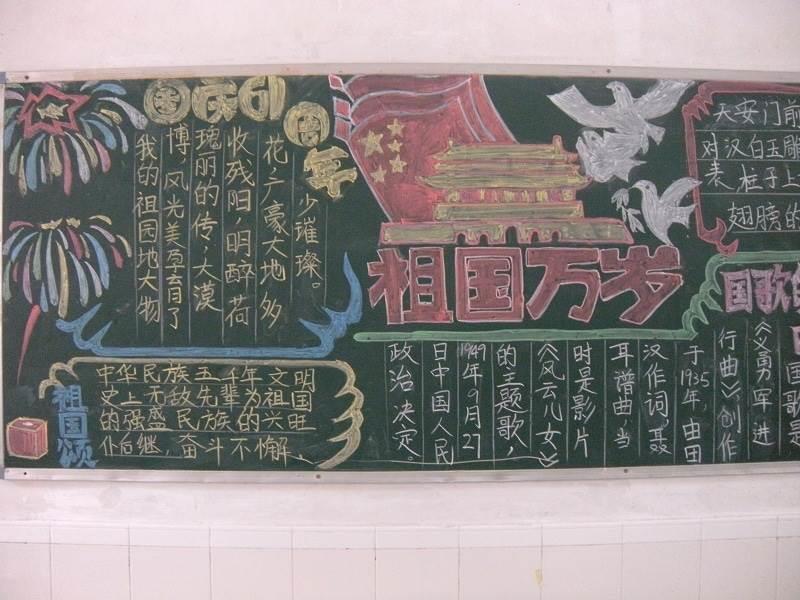 国庆61周年
我的祖园地大物
博,风光美孕育了
瑰丽的传,大漠
收残阳,明醉荷
花,广豪大地多
少璀璨。
祖国颂
中华民族五千年文明
史上无敌先辈为祖国
的强盛民族的兴旺
仆后继,奋斗不懈、
祖国万岁
天安门前
对汉白玉雕
表柱子上
翅膀的
国歌
国歌是
《义勇军进
行曲》创作
于1935年,由田
汉作词。聂
耳谱曲当
时是影片
《风云儿女》
的主题歌,
1949年9月27
日中国人民
政治决定。